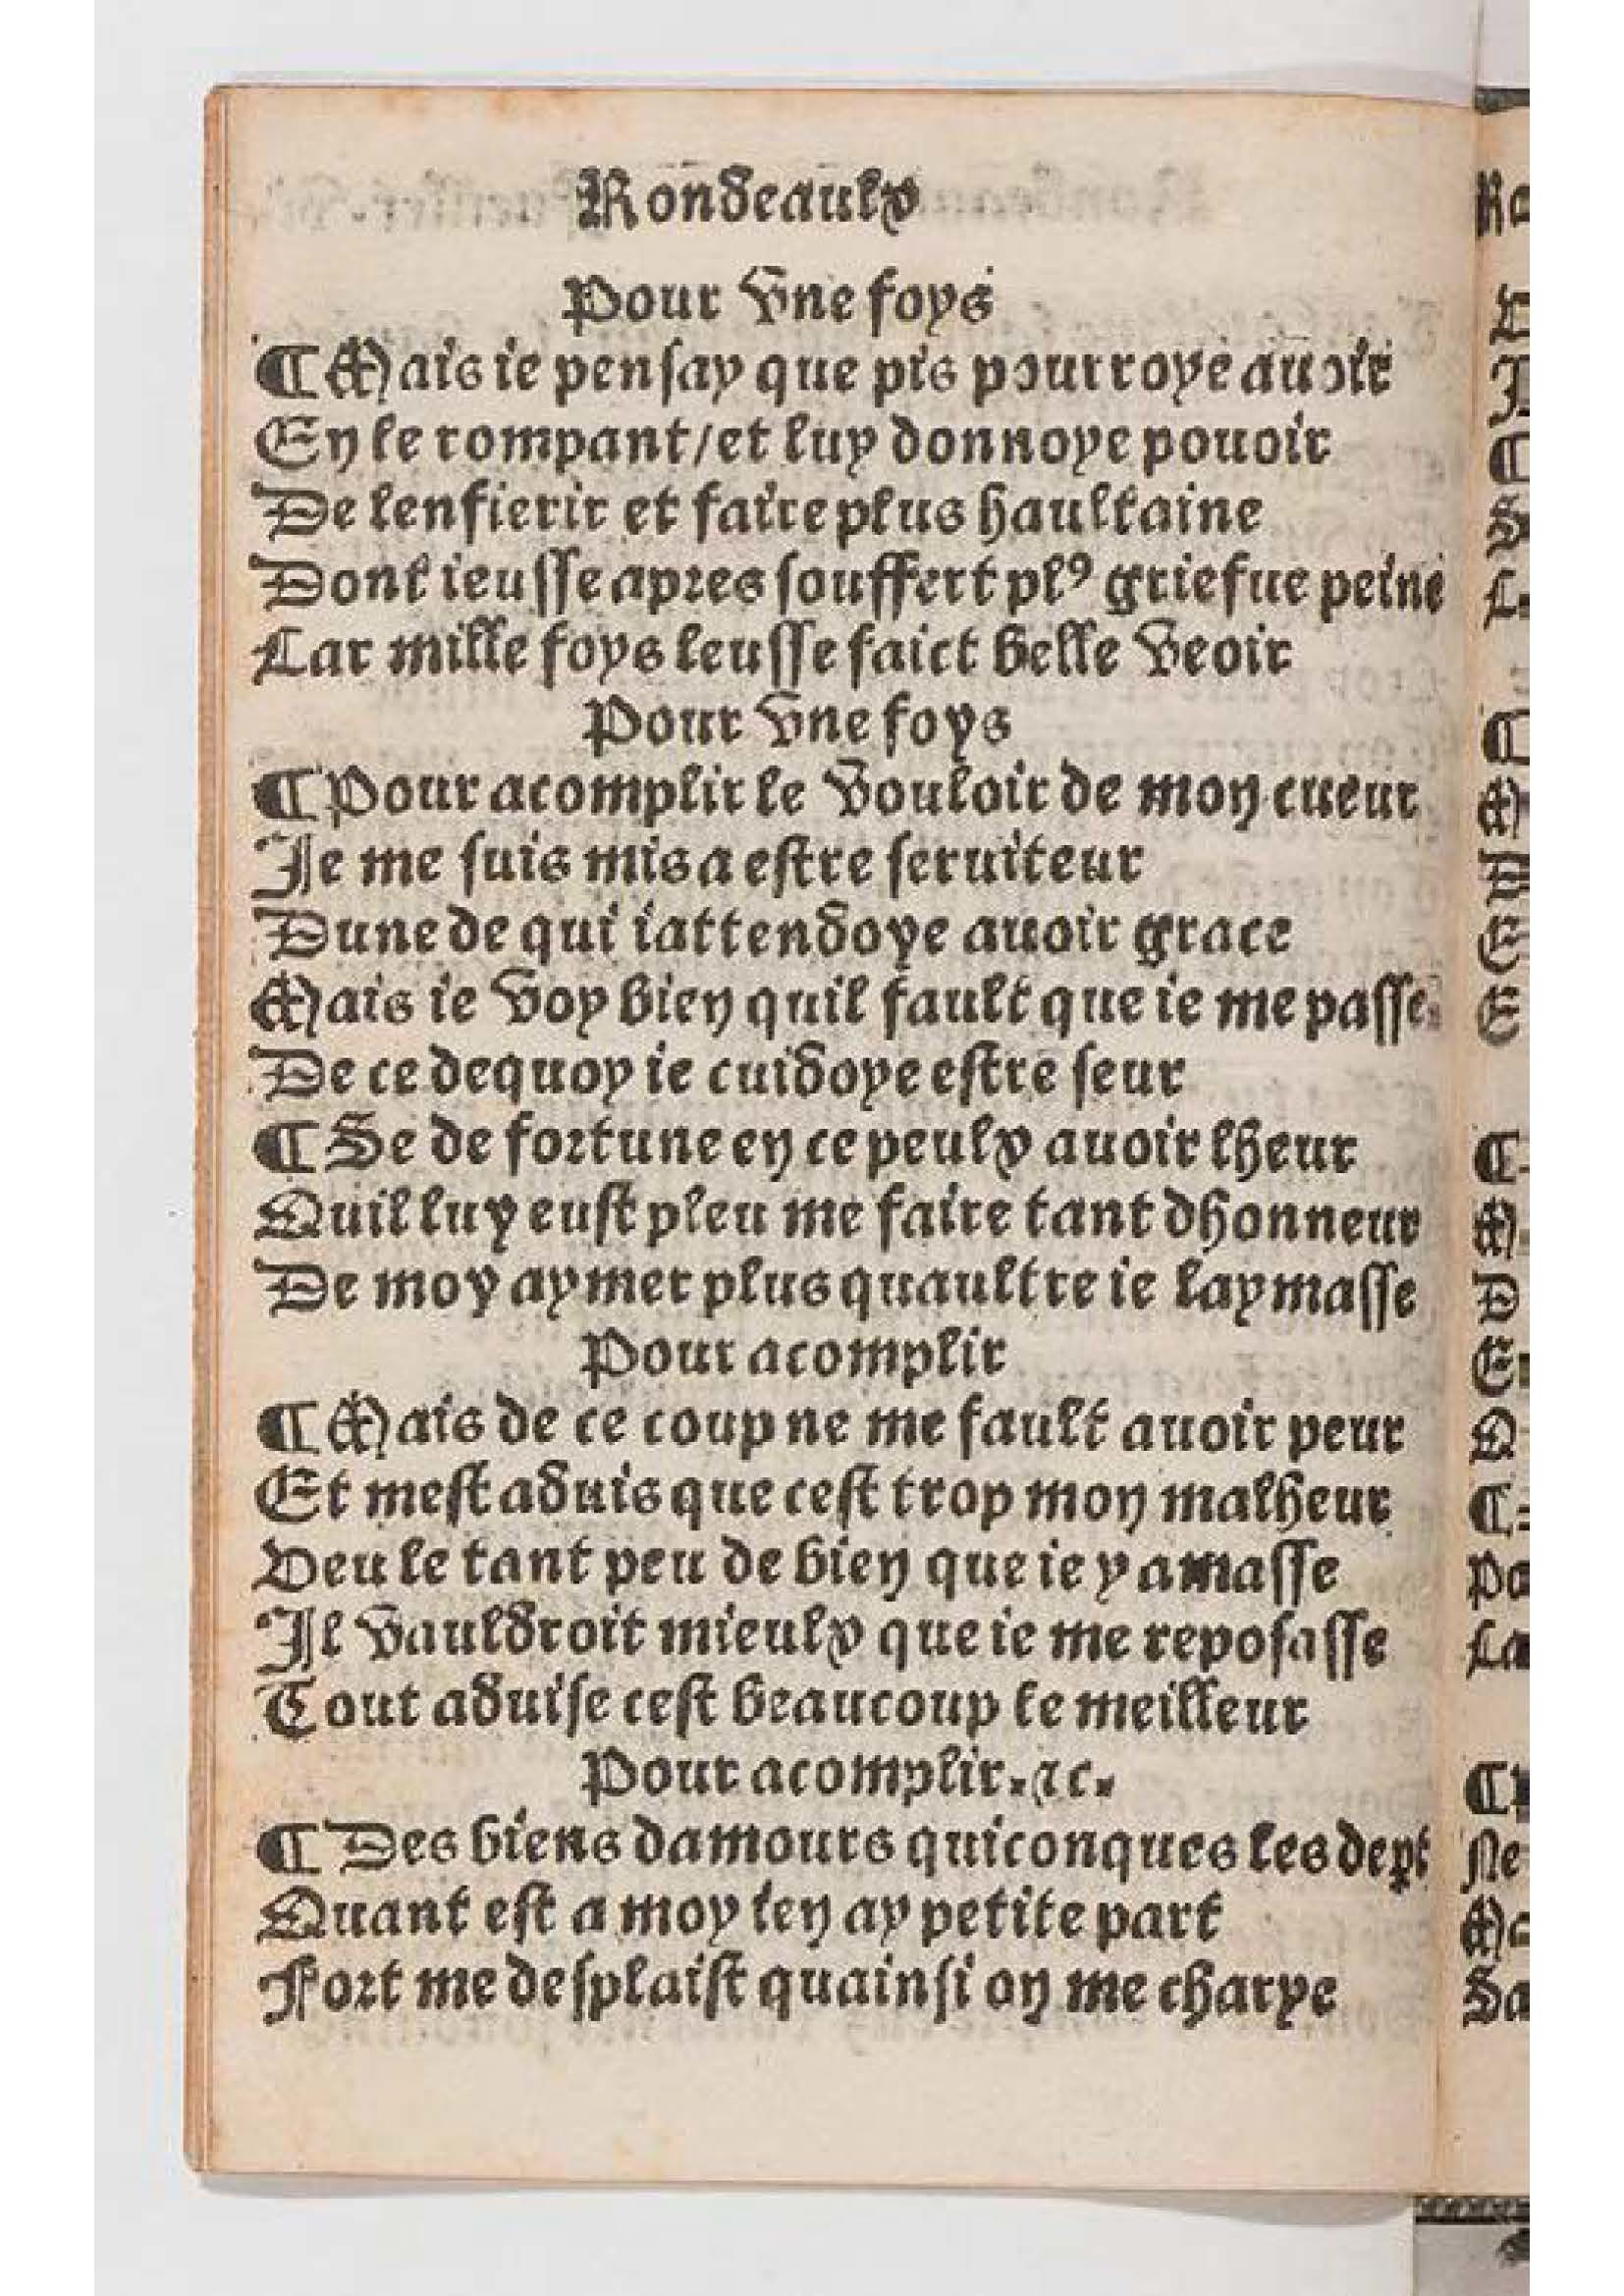 Rondeaulx
Pour vne foys
¶ Mais ie pensay que pis pourroye auoir
En le rompant/et luy donnoye pouoir
De lenfierir et faire plus haultaine
Dont ieusse apres souffert plꝰ griefue peine
Car mille foys leusse faict belle veoir
Pour vne foys
¶ Pour acomplir le vouloir de mon cueur
Je me suis mis a estre seruiteur
Dune de qui iattendoye auoir grace
Mais ie voy bien quil fault que ie me passe
De ce dequoy ie cuidoye estre seur
¶ Se de fortune en ce peulx auoir lheur
Quil luy eust pleu me faire tant dhonneur
De moy aymer plus quaultre ie laymasse
Pour acomplir
¶ Mais de ce coup ne me fault auoir peur
Et mest aduis que cest trop mon malheur
Veu le tant peu de bien que ie y amasse
Il vauldroit mieulx que ie me reposasse
Tout aduise cest beaucoup le meilleur
Pour acomplir.⁊c.
¶ Des biens damours quiconques les deꝑt
Quant est a moy ien ay petite part
Fort me desplaist quainsi on me charye